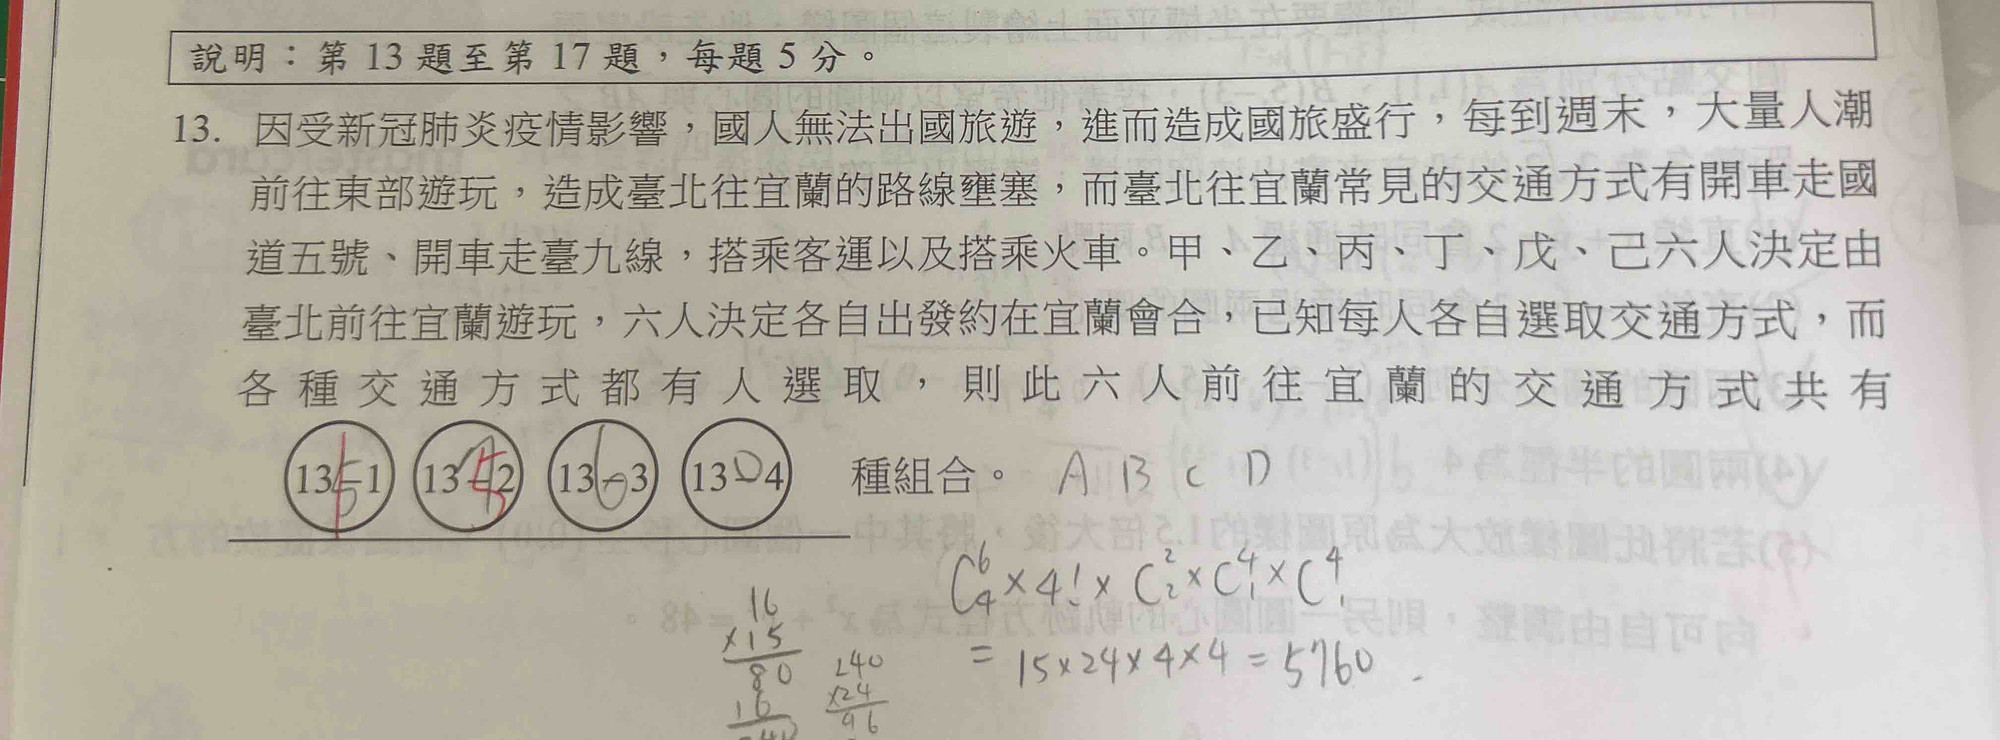 說明：第 13 題至第 17 題，每題 5 分。
13. 因受新冠肺炎疫情影響，國人無法出國旅遊，進而造成國旅盛行，每到週末，大量人潮
前往東部遊玩，造成臺北往宜蘭的路線壅塞，而臺北往宜蘭常見的交通方式有開車走國
道五號、開車走臺九線，搭乘客運以及搭乘火車。甲、乙、丙、丁、戊、己六人決定由
臺北前往宜蘭遊玩，六人決定各自出發約在宜蘭會合，已知每人各自選取交通方式，而
各種交通方式都有人選取，則此六人前往宜蘭的交通方式共有
13-1 13-2 13-3 13-4 種組合。 A B C D
C⁶₄ × 4! × C²₂ × C⁴₁ × C⁴₁
= 15×24×4×4 = 5760.
16
×15
80
16
240
×24
96